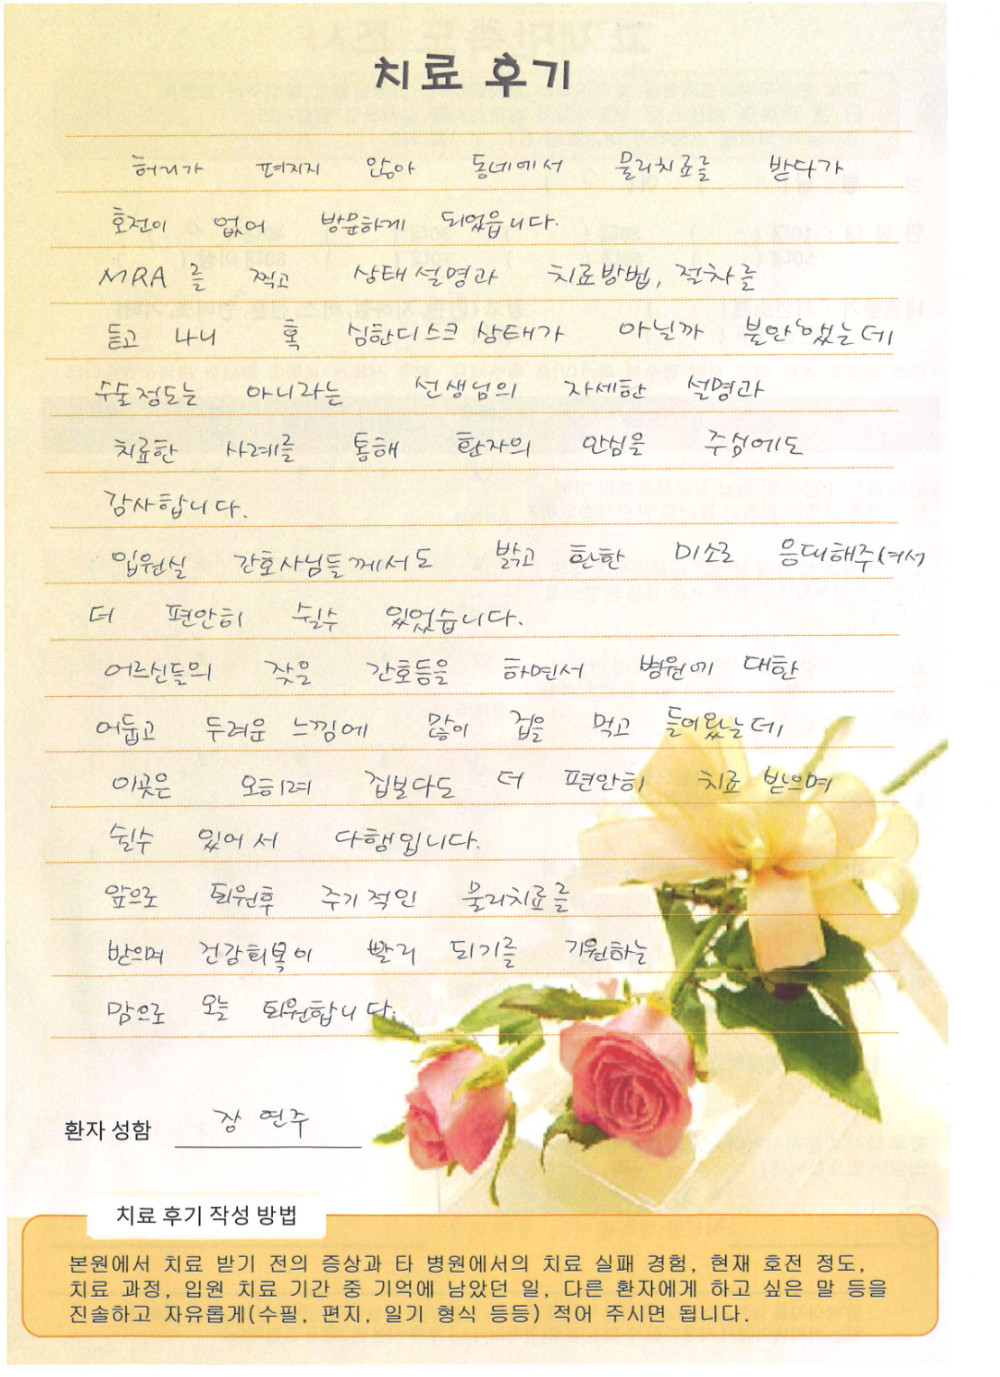 치료 후기
허리가 펴지지 않아 동네에서 물리치료를 받다가
호전이 없어 방문하게 되었읍니다.
MRA를 찍고 상태설명과 치료방법, 절차를
듣고 나니 혹 심한디스크 상태가 아닐까 불안했는데
수술정도는 아니라는 선생님의 자세한 설명과
치료한 사례를 통해 환자의 안심을 주심에도
감사합니다.
입원실 간호사님들께서도 밝고 환한 미소로 응대해주셔서
더 편안히 쉴수 있었습니다.
어르신들의 잦은 간호등을 하면서 병원에 대한
어둡고 두려운 느낌에 많이 겁을 먹고 들어왔는데
이곳은 오히려 집보다도 더 편안히 치료 받으며
쉴수 있어서 다행입니다.
앞으로 퇴원후 주기적인 물리치료를
받으며 건강회복이 빨리 되기를 기원하는
맘으로 오늘 퇴원합니다.
환자 성함 장연주
치료 후기 작성 방법
본원에서 치료 받기 전의 증상과 타 병원에서의 치료 실패 경험, 현재 호전 정도,
치료 과정, 입원 치료 기간 중 기억에 남았던 일, 다른 환자에게 하고 싶은 말 등을
진솔하고 자유롭게(수필, 편지, 일기 형식 등등) 적어 주시면 됩니다.